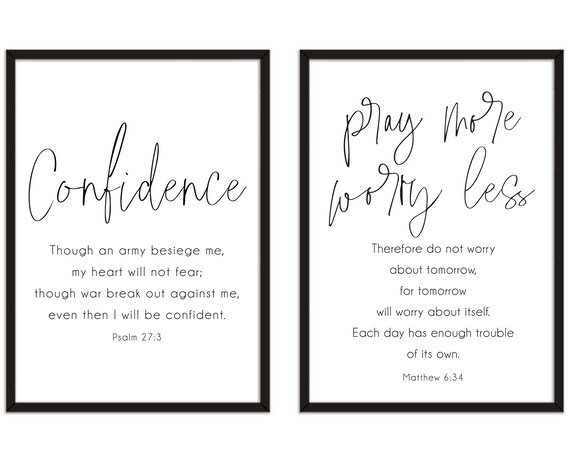 Confidence
Though an army besiege me,
my heart will not fear;
though war break out against me,
even then I will be confident.
Psalm 27:3
pray more
worry less
Therefore do not worry
about tomorrow,
for tomorrow
will worry about itself.
Each day has enough trouble
of its own.
Matthew 6:34